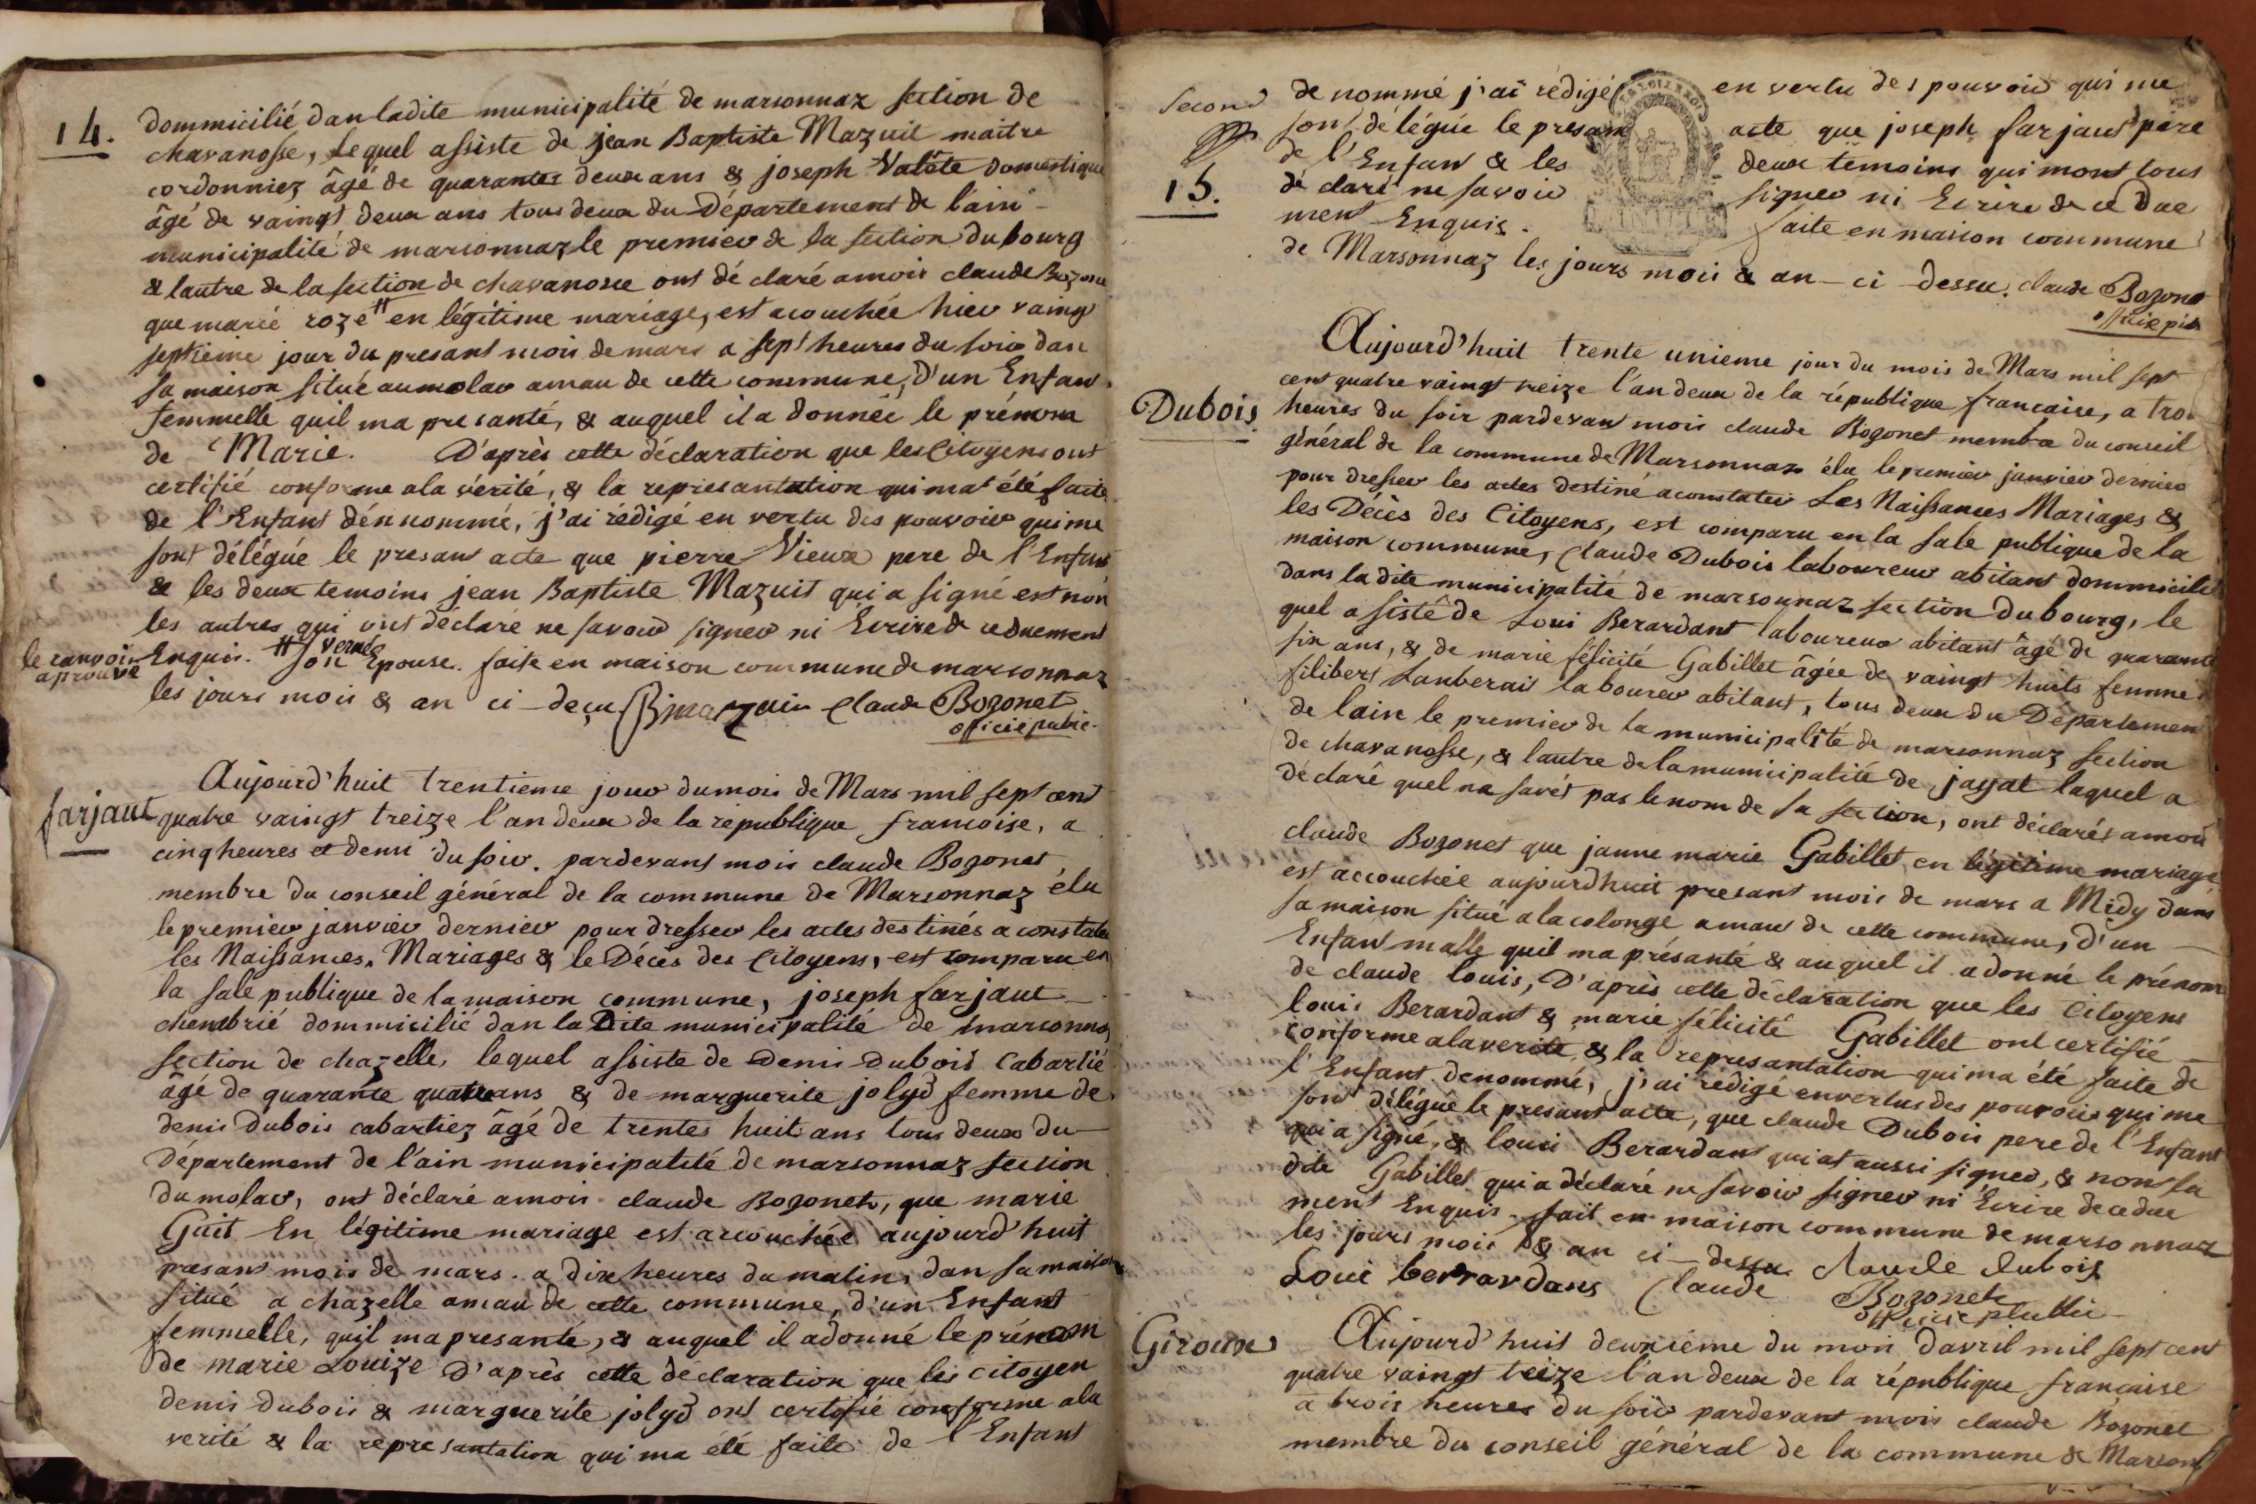 14.
dommicilié dan ladite municipalité de marsonnaz section de
chavanosse, lequel assiste de jean Baptiste Mazuit maitre
cordonniez âgé de quarantes deux ans & joseph Valôte domestique
âgé de vaingt deux ans tous deux du Département de l'ain
municipalité de marsonnaz le premier de la section du bourg
& lautre de la section de chavanosse ont dé claré amois claude Bozonet
que marie roze # en légitime mariage, est acouchée hier vaingt
septieme jour du presant mois de mars a sept heures du soir dan
sa maison situé au molar amau de cette commune, d'un Enfant
femmelle quil ma presanté, & auquel il a donnée le prénom
de Marie. D'après cette déclaration que les Citoyens ont
certifié conforme ala vérité, & la represantation qui mat été faite
de l'Enfant dénnommé, j'ai rédigé en vertu des pouvoir qui me
sont délégué le presant acte que pierre Vieux pere de l'Enfant
& les deux temoins jean Baptiste Mazuit qui a signé est non
les autres qui ont déclaré ne savoir signer ni Ecrire de ce duement
Enquis. # vernée son Epouse. faite en maison commune de marsonnaz
le ranvoir aprouvé
les jours mois & an ci-deçu Claude Bozonet
officié public
farjaut
Aujourd'huit trentieme jour du mois de Mars mil sept cent
quatre vaingt treize l'an deux de la république francoise, a
cinq heures et demi du soir. pardevant mois claude Bozonet
membre du conseil général de la commune de Marsonnaz élu
le premier janvier dernier pour dresser les actes destinés a constater
les Naissances, Mariages & le Décès des Citoyens, est comparu en
la sale publique de la maison commune, joseph farjaut
chembrié dommicilié dan la Dite municipalité de marsonnaz
section de chazelle, lequel assiste de Denis Dubois Cabartié
âgé de quarante quatre ans & de marguerite jolyd femme de
denis dubois cabartiez âgé de trentes huit ans tous deux du
Département de l'ain municipalité de marsonnaz section
du molar, ont déclaré amois claude Bozonet, que marie
Guit En légitime mariage est accouchée aujourd'huit
presant mois de mars. a dix heures du matin, dan sa maison
situé a chazelle amau de cette commune, d'un Enfant
femmelle, quil ma presanté, & auquel il a donné le prénom
de marie Louize D'après cette déclaration que les citoyen
denis dubois & marguerite jolyd ont certifié conforme ala
verité & la represantation qui ma été faite de l'Enfant
Second
15.
de nommé j'ai rédigé en vertu des pouvoir qui me
sont délégué le presant acte que joseph farjaut père
de l'Enfant & les deux temoins qui mont tous
dé claré ne savoir signer ni Ecrire de ce Due
ment Enquis. faite en maison commune
de Marsonnaz les jours mois & an ci dessu. claude Bozonet
Dubois
Aujourd'huit trente unieme jour du mois de Mars mil sept
cent quatre vaingt treize l'an deux de la république francaise, a trois
heures du soir pardevant mois claude Bozonet membre du conseil
général de la commune de Marsonnaz élu le premier janvier dernier
pour dresser les actes destiné a constater Les Naissances Mariages &
les Décès des Citoyens, est comparu en la sale publique de la
maison commune, Claude Dubois laboureur abitant dommicilié
dans la dite municipalité de marsonnaz section du bourg, le
quel a sisté de Loui Berardant laboureur abitant âgé de quarante
six ans, & de marie félicité Gabillet âgée de vaingt huits femme
filibert Lauberais laboureur abitant, tous deux du Département
de lain le premier de la municipalité de marsonnaz section
de chavanosse, & lautre de la municipalité de jayat laquel a
déclaré quel na savés pas le nom de sa section, ont déclarés amois
claude Bozonet que janne marie Gabillet en légitime mariage
est accouchée aujourdhuit presant mois de mars a Midy dans
sa maison situé a la colonge amau de cette commune, d'un
Enfant malle quil ma présanté & auquel il a donné le prénom
de claude louis, D'après cette déclaration que les Citoyens
louis Berardant & marie félicité Gabillet ont certifié
conforme ala verité & la represantation qui ma été faite de
l'Enfant denommé, j'ai rédigé en vertus des pouvoirs qui me
sont délégué le presant acte, que claude Dubois pere de l'Enfant
qui a signé, & loui Berardant qui at aussi signer, & non la
dite Gabillet qui a déclaré ne savoir signer ni Ecrire de ce due
ment Enquis. fait en maison commune de marsonnaz
les jours mois & an ci-dessu claude dubois
Loui berrardans Claude Bozonet
officié publlic
Giroux
Aujourd'huit deuxieme du mois davril mil sept cent
quatre vaingt treize l'an deux de la république francaise
a trois heures du soir pardevant mois claude Bozonet
membre du conseil général de la commune de Marsonnaz